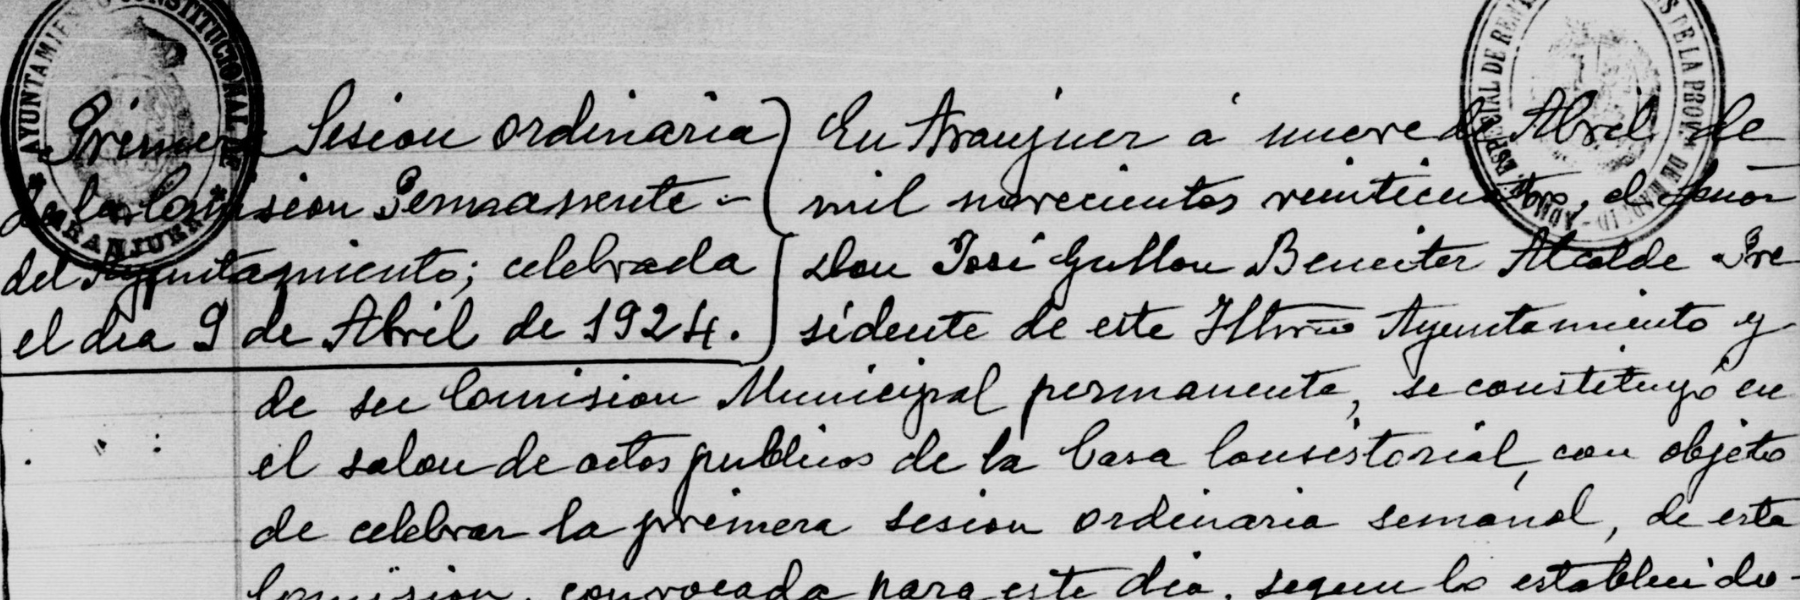 AYUNTAMIENTO CONSTITUCIONAL DE
* ARANJUEZ *
Primera Sesion ordinaria
de la Comision Permanente -
del Ayuntamiento; celebrada
el dia 9 de Abril de 1924.
En Aranjuez á nueve de Abril de
mil novecientos veinticuatro, el Señor
Don José Gullon Beneitez Alcalde Pre
sidente de este Iltmo Ayuntamiento y
de su Comision Municipal permanente, se constituyó en
el salon de actos publicos de la Casa Consistorial, con objeto
de celebrar la primera sesion ordinaria semanal, de esta
Comision, convocada para este dia, segun lo establecido-